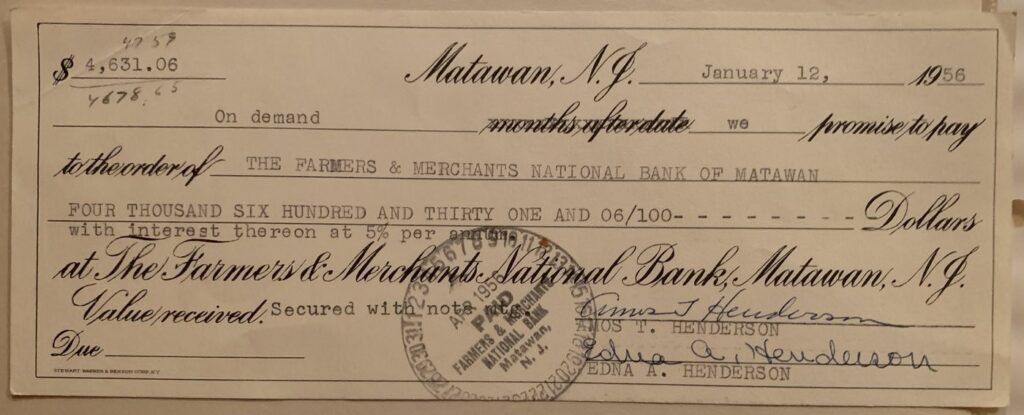 47 59
$ 4,631.06
4678.65
Matawan, N.J. January 12, 1956
On demand months after date we promise to pay
to the order of THE FARMERS & MERCHANTS NATIONAL BANK OF MATAWAN
FOUR THOUSAND SIX HUNDRED AND THIRTY ONE AND 06/100- - - - - - - - - Dollars
with interest thereon at 5% per annum.
at The Farmers & Merchants National Bank, Matawan, N.J.
Value received. Secured with note mtg.
Amos T Henderson
AMOS T. HENDERSON
Due
Edna A. Henderson
EDNA A. HENDERSON
APR 1956
PAID
FARMERS & MERCHANTS
NATIONAL BANK
Matawan,
N. J.